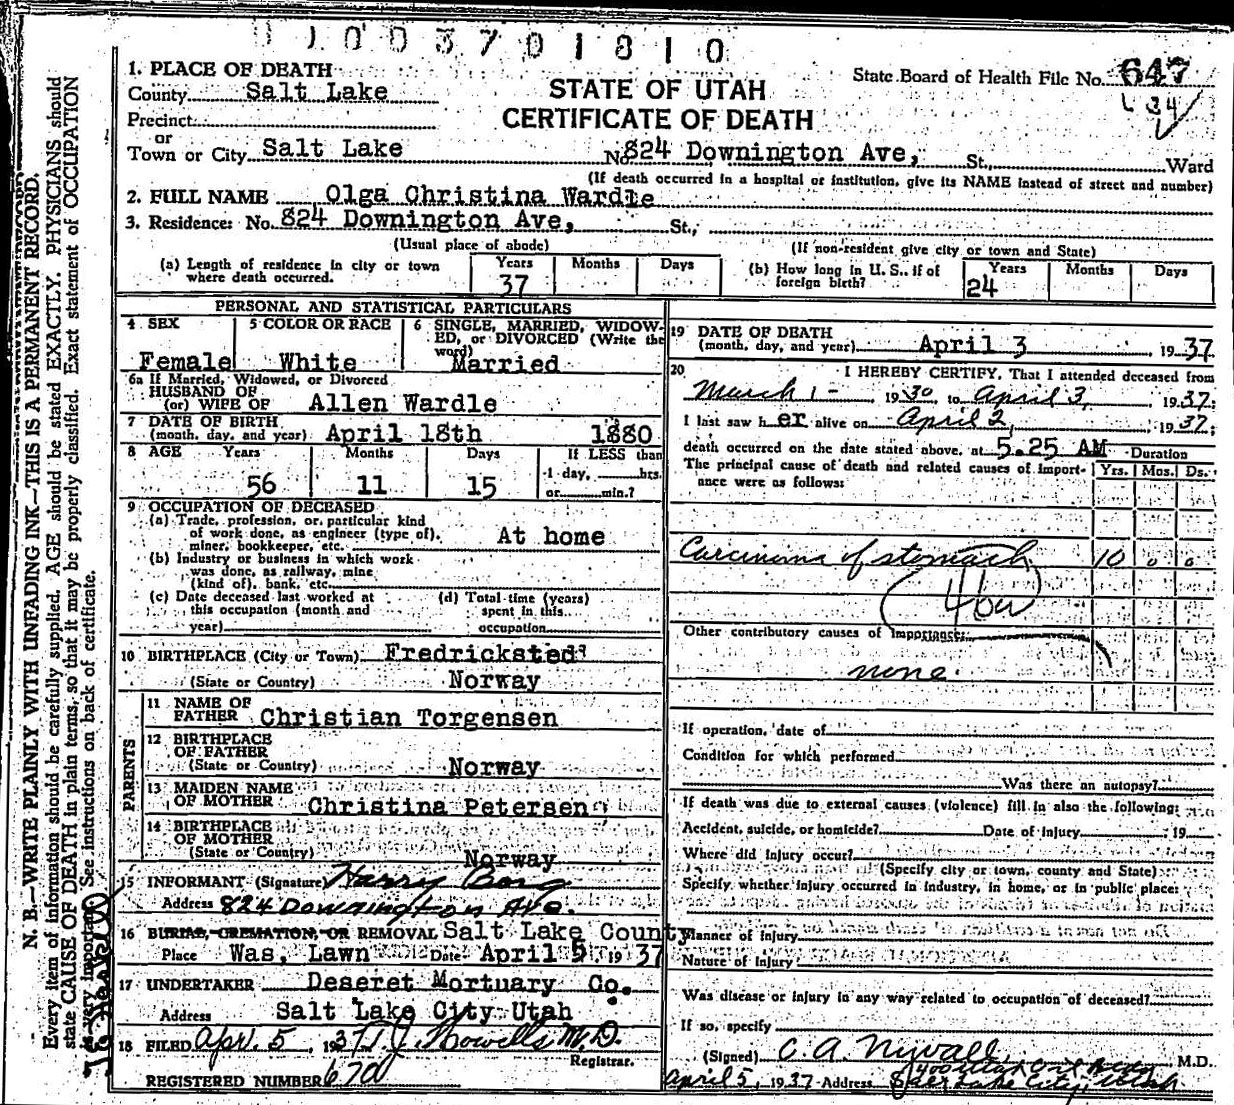 1. PLACE OF DEATH
STATE OF UTAH
CERTIFICATE OF DEATH
State Board of Health File No. 647
County Salt Lake
Precinct
or
Town or City Salt Lake No. 824 Downington Ave, St., Ward
(If death occurred in a hospital or institution, give its NAME instead of street and number)
2. FULL NAME Olga Christina Wardle
3. Residence: No. 824 Downington Ave, St.,
(Usual place of abode) (If non-resident give city or town and State)
(a) Length of residence in city or town where death occurred. Years 37 Months Days
(b) How long in U. S., if of foreign birth? Years 24 Months Days
PERSONAL AND STATISTICAL PARTICULARS
4 SEX Female
5 COLOR OR RACE White
6 SINGLE, MARRIED, WIDOWED, or DIVORCED (Write the word) Married
6a If Married, Widowed, or Divorced
HUSBAND OF
(or) WIFE OF Allen Wardle
7 DATE OF BIRTH
(month, day, and year) April 18th 1880
8 AGE Years 56 Months 11 Days 15
If LESS than 1 day, hrs. or min.?
9 OCCUPATION OF DECEASED
(a) Trade, profession, or particular kind of work done, as engineer (type of), miner, bookkeeper, etc. At home
(b) Industry or business in which work was done, as railway, mine (kind of), bank, etc.
(c) Date deceased last worked at this occupation (month and year)
(d) Total time (years) spent in this occupation
10 BIRTHPLACE (City or Town) Fredricksted
(State or Country) Norway
PARENTS
11 NAME OF FATHER Christian Torgensen
12 BIRTHPLACE OF FATHER
(State or Country) Norway
13 MAIDEN NAME OF MOTHER Christina Petersen
14 BIRTHPLACE OF MOTHER
(State or Country) Norway
15 INFORMANT (Signature) Harry Borg
Address 824 Downington Ave.
16 BURIAL, CREMATION, OR REMOVAL Salt Lake County
Place Was, Lawn Date April 5 1937
17 UNDERTAKER Deseret Mortuary Co.
Address Salt Lake City Utah
18 FILED Apr. 5, 1937 T. J. Howells M.D.
Registrar.
REGISTERED NUMBER 670
19 DATE OF DEATH
(month, day, and year) April 3, 1937
20 I HEREBY CERTIFY, That I attended deceased from
March 1-, 1930 to April 3, 1937;
I last saw her alive on April 2, 1937;
death occurred on the date stated above, at 5.25 AM Duration
The principal cause of death and related causes of importance were as follows: Yrs. Mos. Ds.
Carcinoma of stomach 10 0 0
Other contributory causes of importance:
none.
If operation, date of
Condition for which performed
Was there an autopsy?
If death was due to external causes (violence) fill in also the following:
Accident, suicide, or homicide? Date of Injury 19
Where did injury occur?
(Specify city or town, county and State)
Specify whether injury occurred in industry, in home, or in public place:
Manner of Injury
Nature of Injury
Was disease or injury in any way related to occupation of deceased?
If so, specify
(Signed) C. A. Nyvall M.D.
April 5, 1937 Address
Salt Lake City, Utah
N. B.—WRITE PLAINLY WITH UNFADING INK—THIS IS A PERMANENT RECORD.
Every item of information should be carefully supplied. AGE should be stated EXACTLY. PHYSICIANS should
state CAUSE OF DEATH in plain terms, so that it may be properly classified. Exact statement of OCCUPATION
is very important. See instructions on back of certificate.